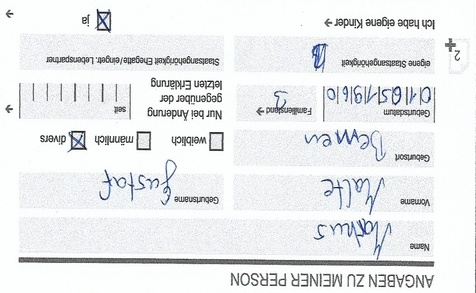 ANGABEN ZU MEINER PERSON
Name
Markus
Vorname
Malte
Geburtsname
Gustaf
Geburtsort
Bemen
weiblich männlich divers
Geburtsdatum
01051960
Familienstand →
3
Nur bei Änderung
gegenüber der
letzten Erklärung
seit
eigene Staatsangehörigkeit
Staatsangehörigkeit Ehegatte/eingetr. Lebenspartner
2
Ich habe eigene Kinder →
ja